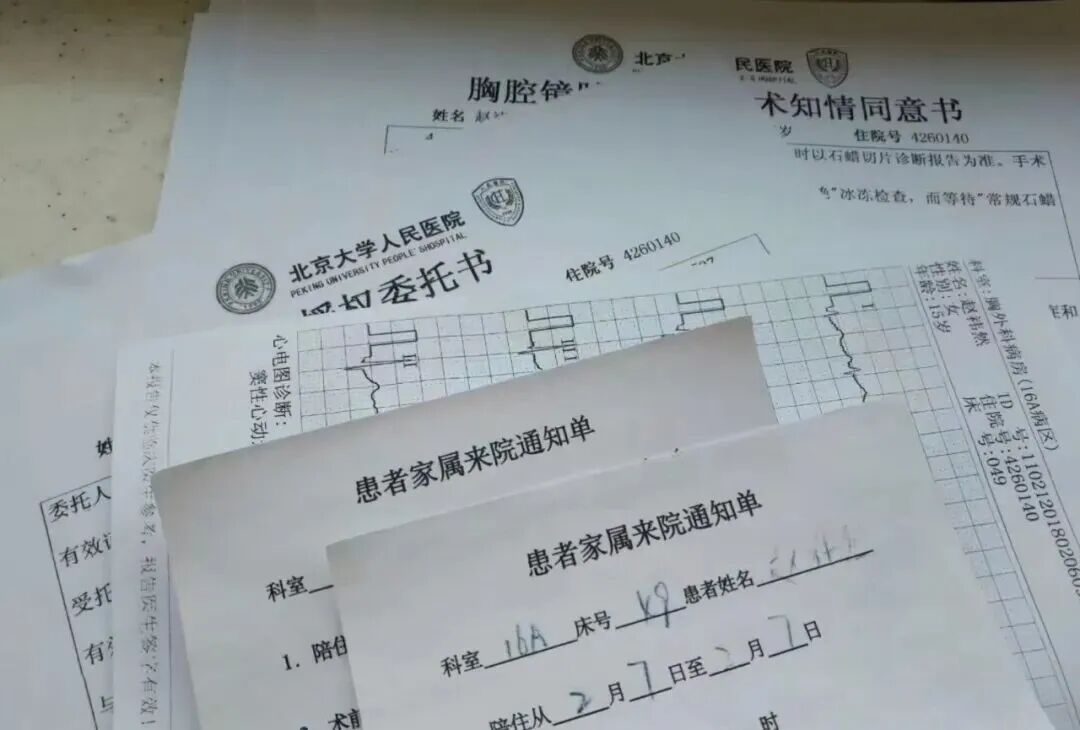 北京
民医院
胸腔镜
术知情同意书
姓名 赵
岁
住院号 4260140
时以石蜡切片诊断报告为准。手术
"冰冻检查，而等待"常规石蜡
北京大学人民医院
PEKING UNIVERSITY PEOPLE'S HOSPITAL
授权委托书
住院号 4260140
科室:胸外科病房(16A病区)
姓名:赵祎然
性别:女
年龄:15岁
ID 号:1102120180206
住院号:4260140
床 号:049
I
II
III
心电图诊断:
窦性心动
本报告仅供临床医生参考，报告医生签字有效!
委托人
有效
受托
有
与
患者家属来院通知单
科室
1. 陪住
术前
患者家属来院通知单
科室 16A 床号 49 患者姓名
陪住从 2 月 7 日至 2 月 7 日
时